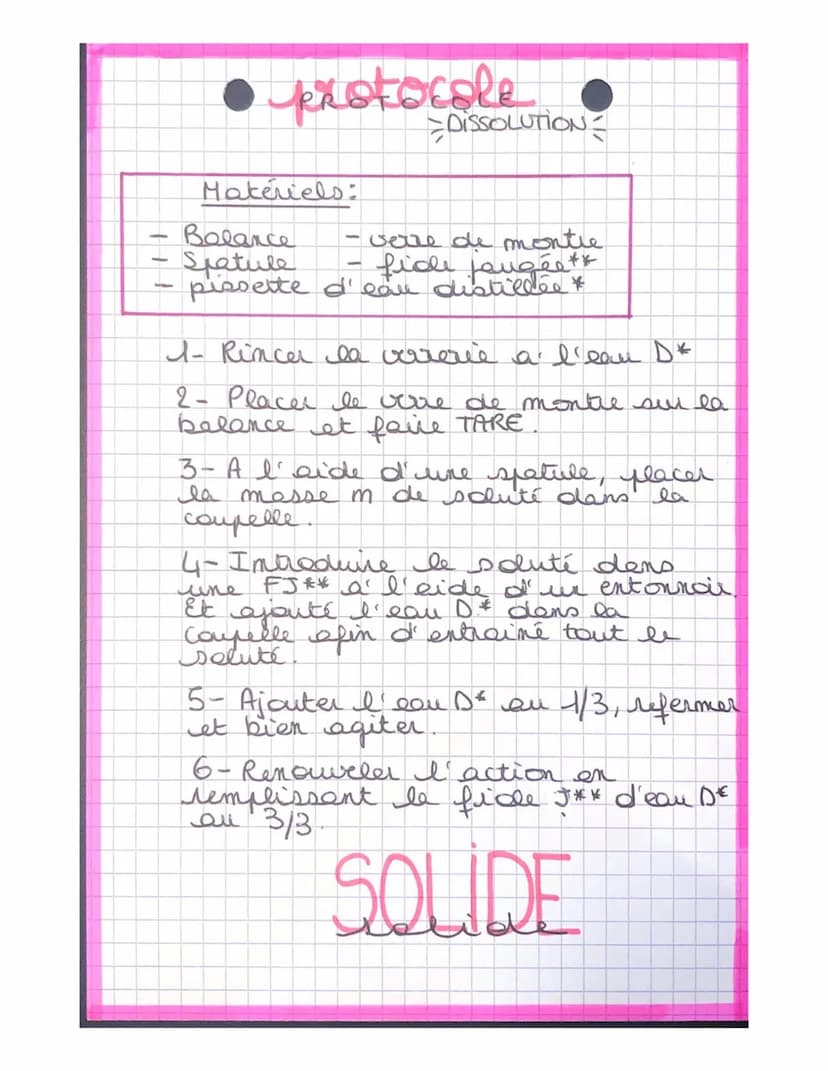 protocole
PROTOCOLE
DISSOLUTION
Matériels:
- Balance - verre de montre
- Spatule - fiole jaugée**
- pissette d'eau distillée*
1- Rincer la verrerie à l'eau D*
2- Placer le verre de montre sur la
balance et faire TARE.
3- A l'aide d'une spatule, placer
la masse m de soluté dans la
coupelle.
4- Introduire le soluté dans
une FJ** à l'aide d'un entonnoir.
Et ajouté l'eau D* dans la
coupelle afin d'entrainé tout le
soluté.
5- Ajouter l'eau D* au 1/3, refermer
et bien agiter.
6- Renouveler l'action en
remplissant la fiole J** d'eau D*
au 3/3.
SOLIDE
solide